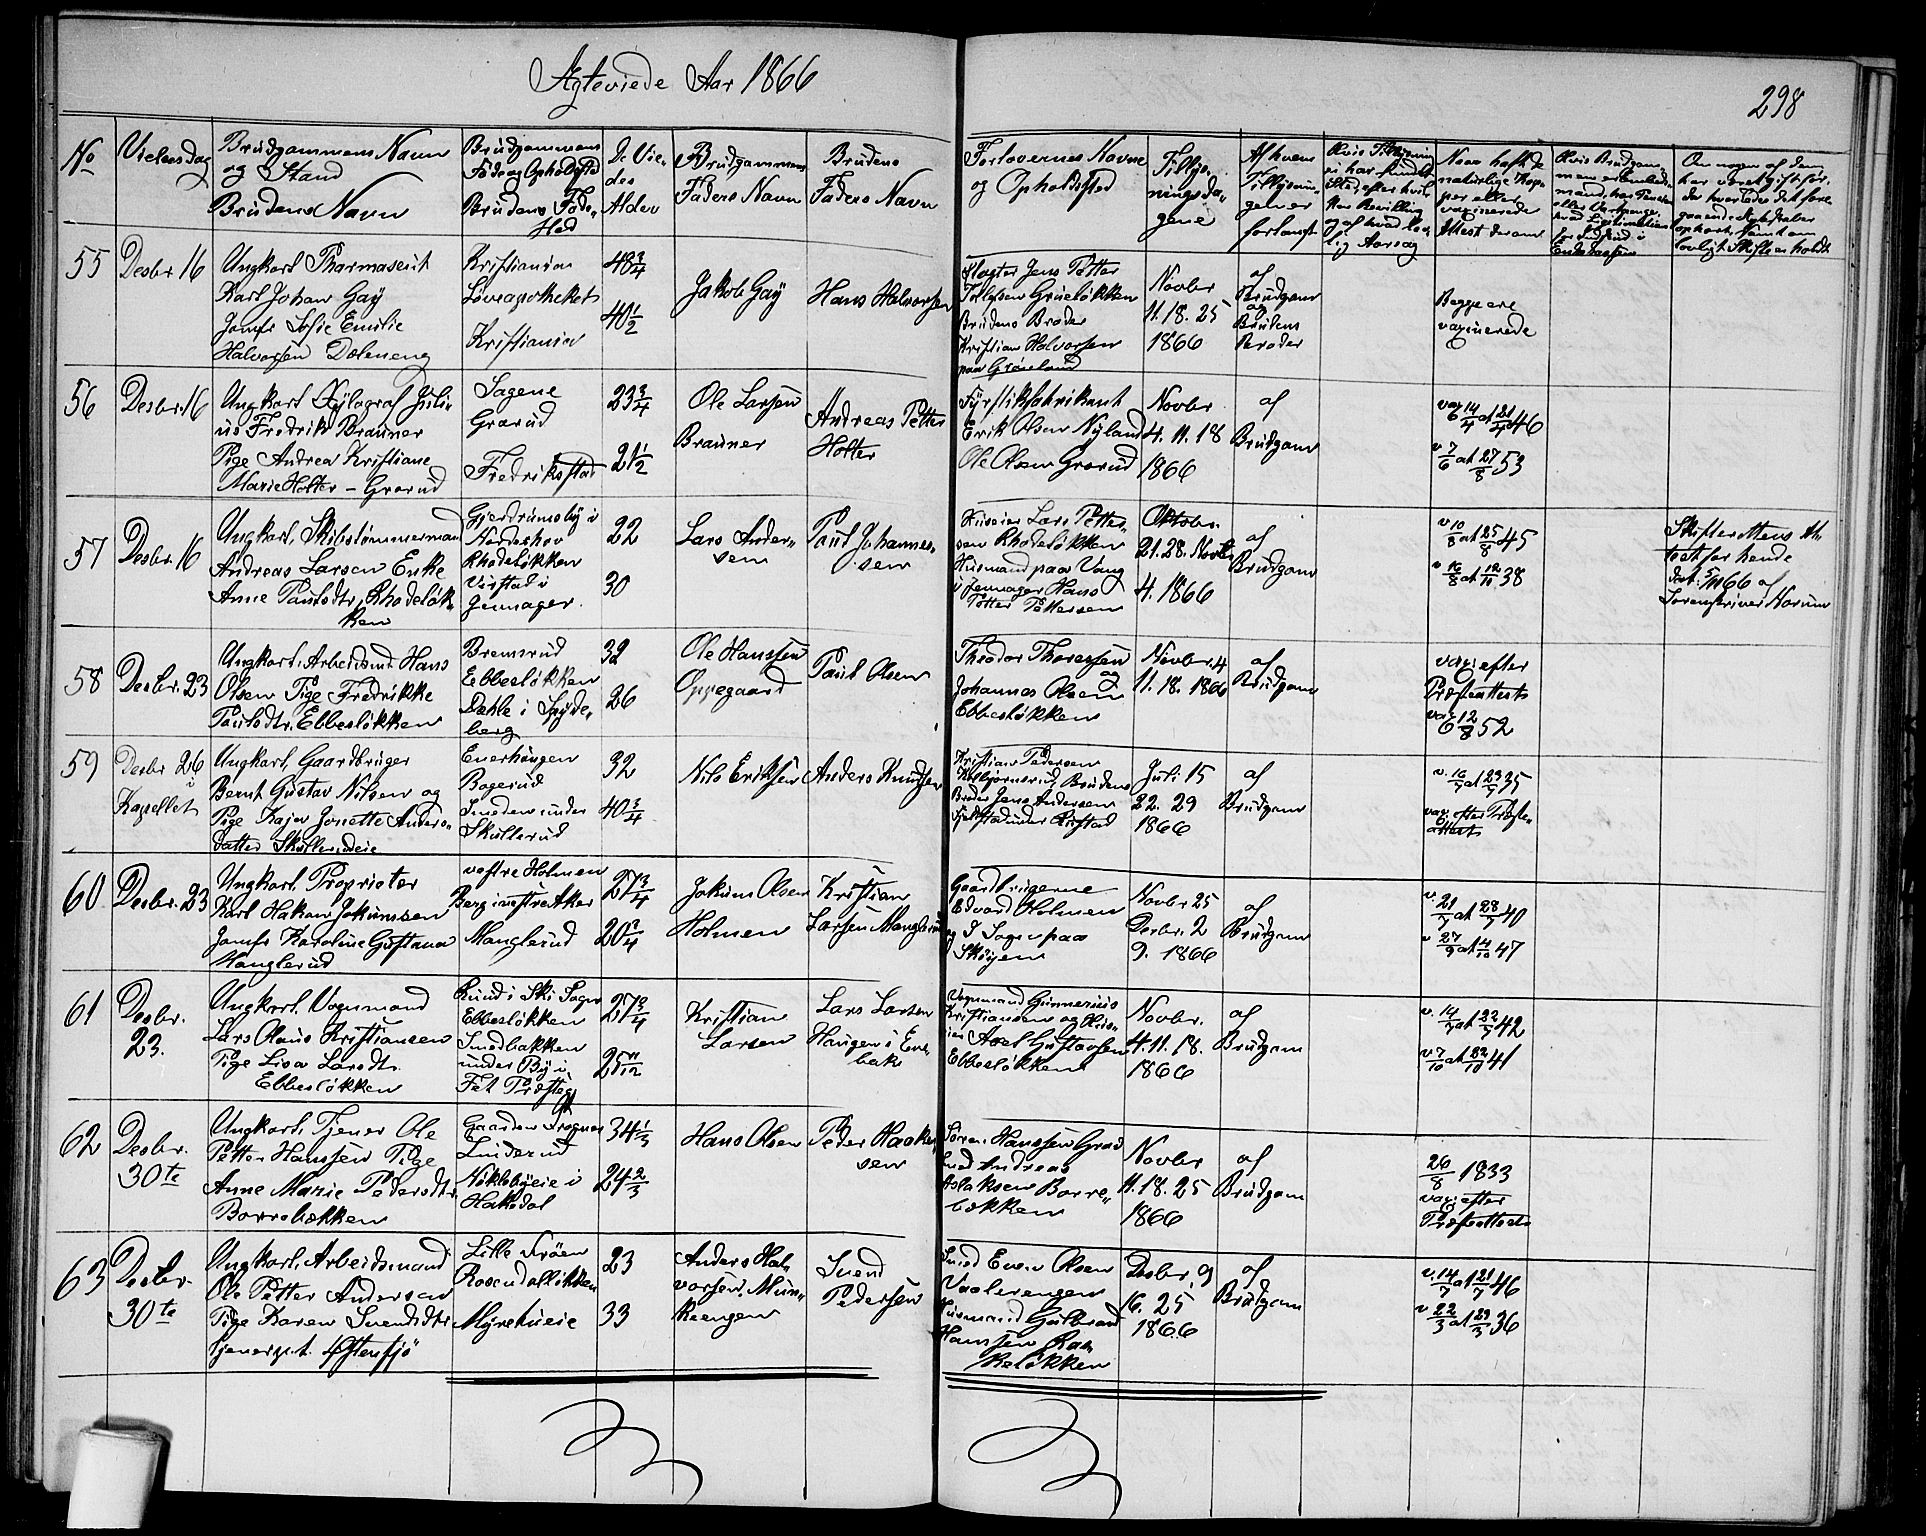 Agteviede Aar 1866
298
No
Vielsesdag
Brudgommens Navn
og Stand
Brudens Navn
Brudgommens
Føde og Opholdssted
Brudens Føde-
sted
De Vie-
des
Alder
Brudgommens
Faders Navn
Brudens
Faders Navn
Forlovernes Navne
og Opholdssted
Tillys-
ningsda-
gene
Af hvem
Tillysnin-
gen er
forlangt
Naar havte de
naturlige Kop-
per eller
vaxinerede
Attest derom
55
Desbr 16
Ungkarl Pharmaseut
Karl Johan Gay
Jomfr Sofie Emilie
Halvorsen Dæleneng
Kristiania
Løveapotheket
Kristiania
48 3/4
40 1/2
Jakob Gay
Hans Halvorsen
Slagter Jens Petter
Grueløkken
Brudens Broder
Kristian Halvorsen
paa Grønland
Novbr
11. 18. 25
1866
af
Brudgom
og
Brudens
Broder
Begge ere
vaxinerede
56
Desbr 16
Ungkarl Xylograf Juli-
us Fredrik Brauner
Pige Andrea Kristiane
Marie Holter - Grorud
Sagene
Grorud
Fredriksstad
23 3/4
21 1/2
Ole Larsen
Brauner
Andreas Petter
Holter
Fyrstikfabrikant
Erik Olsen Nyland
Ole Olsen Grorud
Novbr
4. 11. 18
1866
af
Brudgom
vax 14/4 at 21/4 46
v 7/6 at 27/8 53
57
Desbr. 16
Ungkarl. Skibstømmermand
Andreas Larsen Enke
Anne Paulsdtr, Rhodeløk-
ken
Gjerdrumsby i
Nordeshov
Rhodeløkken
Virstad i
Jevnager.
22
30
Lars Ander-
sen
Paul Johannes-
sen
Huseier Lars Petter-
sen Rhodeløkken
Husmand paa Vang
i Jevnager Hans
Petter Pettersen
Oktobr.
21. 28. Novbr
4. 1866
af
Brudgom
v 10/8 at 25/8 45
v 16/8 at 12/11 38
Skifterettens At-
test for hende
dat. 5/11 66 af
Sorenskriver Horum
58
Desbr. 23
Ungkarl. Arbeidsmd Hans
Olsen Pige Fredrikke
Paulsdtr. Ebbesløkken
Bremsrud
Ebbesløkken
Dæhle i Spyde-
berg
32
26
Ole Hanssen
Oppegaard
Paul Olsen
Theodor Thoressen
og
Johannes Olsen
Ebbesløkken
Novbr. 4
11. 18. 1866
af
Brudgom
vax: efter
Præsteattest
vax 12/8 52
59
Desbr 26
i
Kapellet
Ungkarl, Gaardbruger
Bernt Gustav Nilsen og
Pige Kajen Jonette Anders-
datter Skullerudeie
Enerhaugen
Bogerud
Smeden under
Skullerud
32
40 3/4
Nils Eriksen
Anders Knudsen
Kristian Pedersen
Brudens
Broder Jens Andersen
Juli 15
22. 29
1866
af
Brudgom
v. 16/7 at 23/7 35
vax: efter Præste-
attest
60
Desbr. 23
Ungkarl. Proprietær
Karl Hakon Jokumsen
Jomfr Karoline Gustava
Manglerud
vestre Holmen
Berg i vestre Aker
Manglerud
27 3/4
20 3/4
Jokum Olsen
Holmen
Kristian
Larsen Manglerud
Gaardbrugerne
Edvard Holmen
og I Sogn paa
Skøyen
Novbr 25
Desbr. 2
9. 1866
af
Brudgom
v. 21/7 at 28/7 40
v 27/9 at 4/10 47
61
Desbr.
23.
Ungkarl. Vognmand
Lars Olaus Kristiansen
Pige Lisa Larsdtr.
Ebbesløkken
Rund i Ski Sogn
Ebbesløkken
Smedbakken
under By i
Fet Præsteg
27 3/4
25 11/12
Kristian
Larsen
Lars Larsen
Haugen i Ene-
bak
Vognmand Gunnerius
Kristiansen og Hus-
eier Axel Gustavsen
Ebbesløkken
Novbr.
4. 11. 18.
1866
af
Brudgom
v. 14/7 at 22/7 42
v 7/10 at 22/10 41
62
Desbr.
30te
Ungkarl. Tjener Ole
Petter Hanssen Pige
Anne Marie Pedersdtr.
Borrebækken
Gaarden Frogner
Linderud
Nøklebyeie i
Hakedal
34 1/3
24 2/3
Hans Olsen
Peder Haaken-
sen
Søren Hanssen Grav
Smed Andreas
Aslaksen Borre-
bækken
Novbr
11. 18. 25
1866
af
Brudgom
26/8 1833
vax: efter
Præsteattest
63
Desbr.
30te
Ungkarl. Arbeidsmand
Ole Petter Andersen
Pige Karen Svendsdtr.
Østensjø
Lille Frøen
Rosendalløkken
Myrehueie
23
33
Anders Hal-
vorsen Mun-
keengen
Svend
Pedersen
Smed Even Olsen
Vaalerengen
Husmand Gulbrand
Hanssen Bak-
keløkken
Desbr. 9
16. 25
1866
af
Brudgom
v. 14/7 at 21/7 46
v 22/3 at 29/3 36